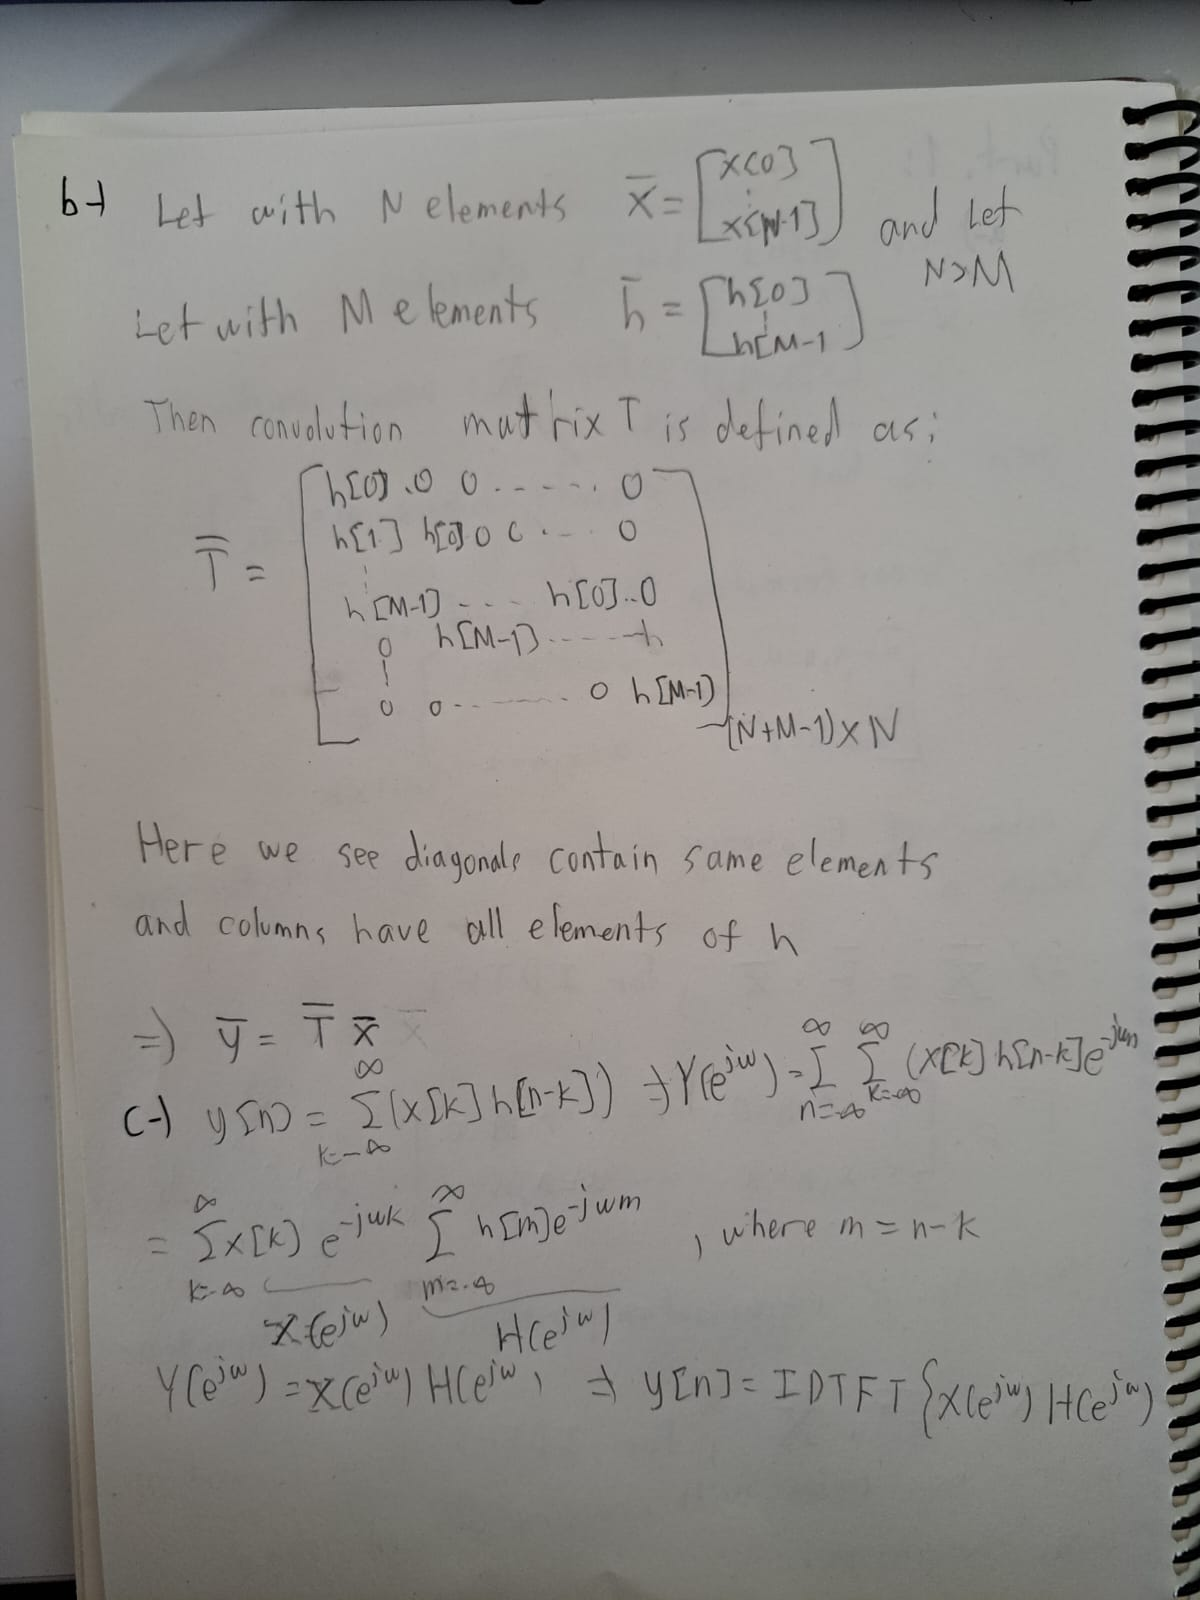 b-) Let with N elements x̄ = [x[0] ⋮ x[N-1]] and Let
N>M
Let with M elements h̄ = [h[0] ⋮ h[M-1]
Then convolution matrix T is defined as;
h[0] . 0 0 . - - - . . 0
h[1] h[0] 0 0 . - - 0
T̿ =
h[M-1] - - - h[0]..0
0 h[M-1] - - - - - h
0 0 - - - - - - . 0 h[M-1]
(N+M-1)×N
Here we see diagonals contain same elements
and columns have all elements of h
=) ȳ = T̿ x̄
c-) y[n] = ∑_{k=-∞}^{∞} (x[k] h[n-k]) ⇒ Y(e^{jw}) = ∑_{n=-∞}^{∞} ∑_{k=-∞}^{∞} (x[k] h[n-k]e^{-jwn}
= ∑_{k=-∞}^{∞} x[k] e^{-jwk} ∑_{m=-∞}^{∞} h[m]e^{-jwm} , where m = n-k
X(e^{jw}) H(e^{jw})
Y(e^{jw}) = X(e^{jw}) H(e^{jw}) ⇒ y[n] = IDTFT {X(e^{jw}) H(e^{jw})